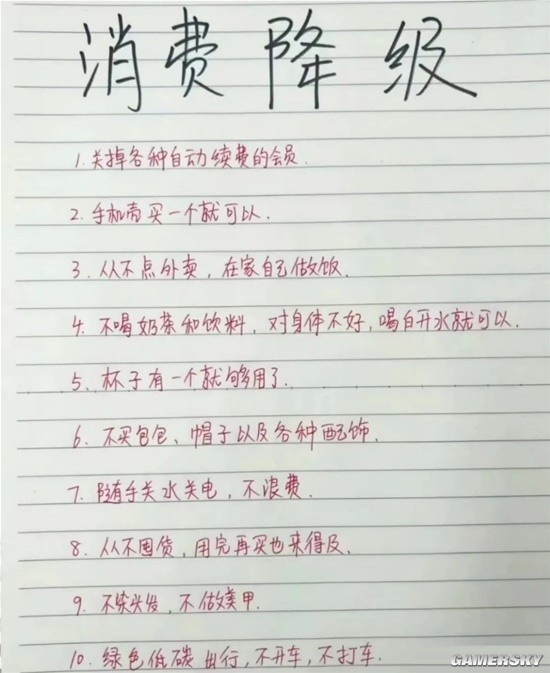 消费降级
1. 关掉各种自动续费的会员.
2. 手机壳买一个就可以.
3. 从不点外卖, 在家自己做饭.
4. 不喝奶茶和饮料, 对身体不好, 喝白开水就可以.
5. 杯子有一个就够用了.
6. 不买包包、帽子以及各种配饰.
7. 随手关水关电, 不浪费.
8. 从不囤货, 用完再买也来得及.
9. 不染头发, 不做美甲.
10. 绿色低碳出行, 不开车, 不打车.
GAMERSKY